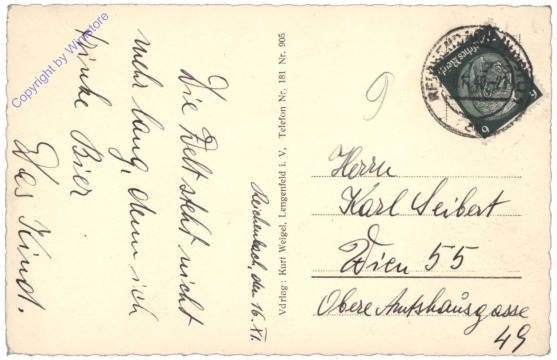 Reichenbach, den 16. XI.
Die Welt steht nicht
mehr lang, denn ich
trinke Bier
Das Kind.
Verlag: Kurt Weigel, Lengenfeld i. V., Telefon Nr. 181 Nr. 905
9
Herrn
Karl Seibert
Wien 55
Obere Amtshausgasse
49
Deutsches Reich
6
6
Copyright by Winstore